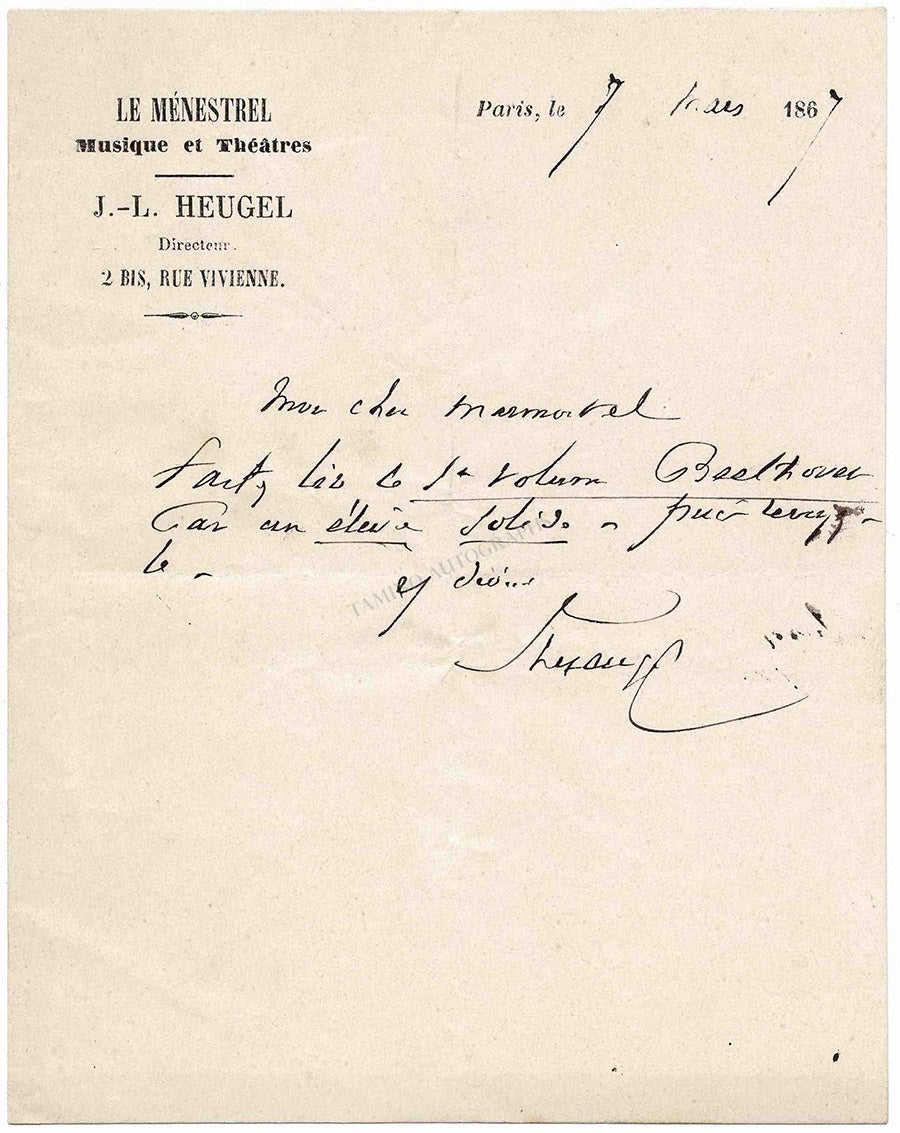 LE MÉNESTREL
Musique et Théâtres
J.-L. HEUGEL
Directeur.
2 BIS, RUE VIVIENNE.
Paris, le 7 Mars 1867
Mon cher Marmontel
Faites lire ce 1er volume Beethoven
Par un élève solide - puis
le -
TAMINO AUTOGRAPHS